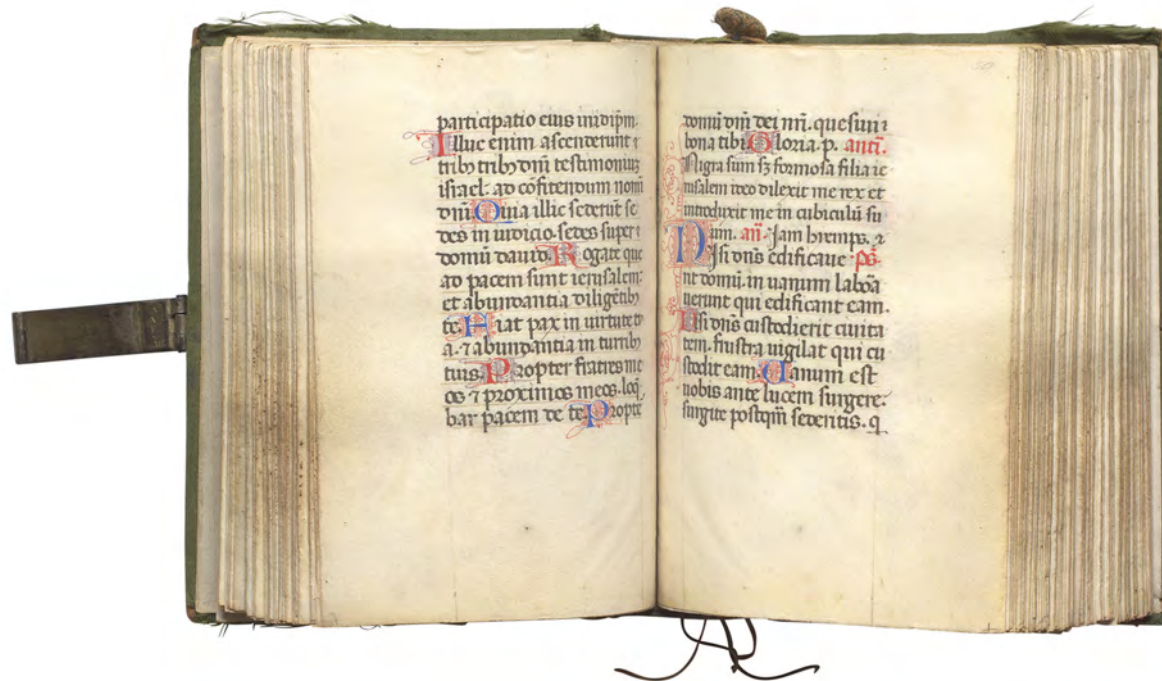 participatio eius in idip̄m.
Illuc enim ascenderunt ⁊
tribꝫ tribꝫ dn̄i testimoniuꝫ
israel· ad cōfitendum nomī
dn̄i Quia illic sederūt se
des in iudicio· sedes super ⁊
domū dauid. Rogate que
ad pacem sunt ierusalem:
et abundantia diligētibꝫ
te. Fiat pax in uirtute t
a· ⁊ abundantia in turribꝫ
tuis. Propter fratres me
os ⁊ proximos meos. loq̄
bar pacem de te. Propte
domū dn̄i dei nr̄i. quesiui ⁊
bona tibi. Gloria p. anti.
Nigra sum sꝫ formosa filia ie
rusalem ideo dilexit me rex et
introduxit me in cubiculū su
um. an̄. Jam hyemps. ⁊
Nisi dn̄s edificaue· ps̄.
nt domū. in uanum laboā
uerunt qui edificant eam.
Nisi dn̄s custodierit ciuita
tem. frustra uigilat qui cu
stodit eam. Uanum est
uobis ante lucem surgere:
surgite postqm̄ sederitis. q